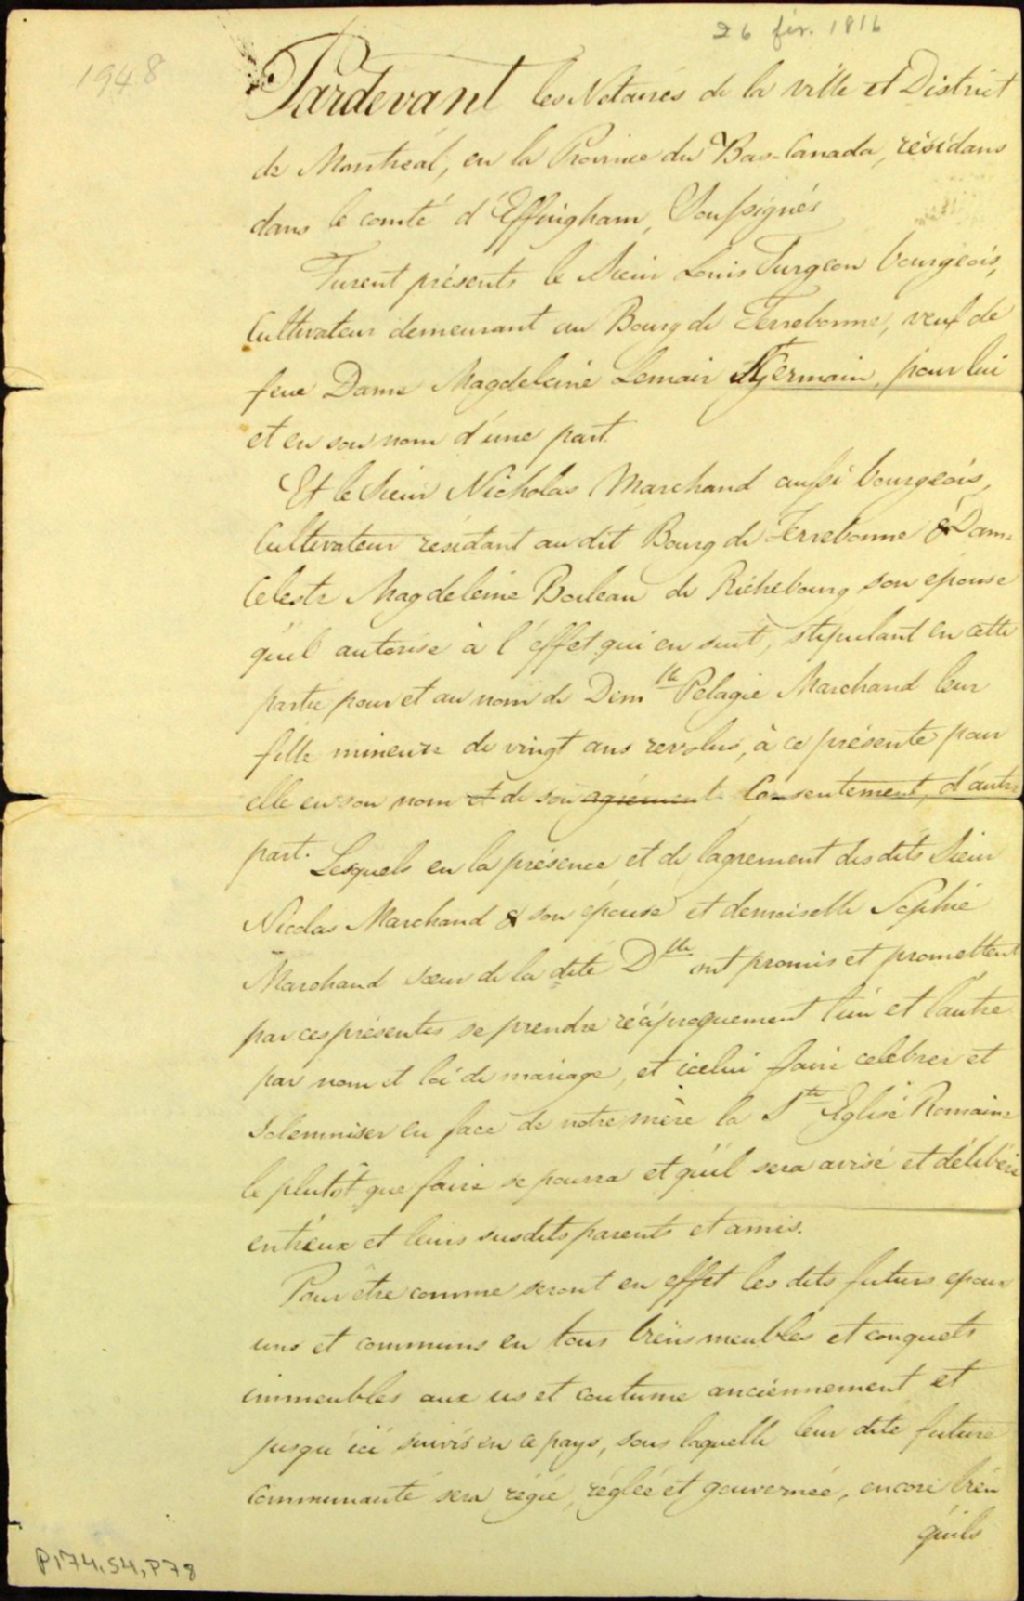 26 fév. 1816
1948
Pardevant les Notaires de la ville et District
de Montreal, en la Province du Bas-Canada, résidans
dans le comté d'Effingham, Soussignés
Furent présents le Sieur Louis Turgeon bourgeois,
Cultivateur demeurant au Bourg de Terrebonne, veuf de
feue Dame Magdeleine Lemair St Germain, pour lui
et en son nom d'une part.
Et le Sieur Nicholas Marchand aussi bourgeois,
Cultivateur résidant au dit Bourg de Terrebonne & Dame
Celeste Magdeleine Boileau de Richebourg son epouse
qu'il autorise à l'effet qui en suit, stipulant en cette
partie pour et au nom de Demlle Pelagie Marchand leur
fille mineure de vingt ans revolus, à ce présente pour
elle en son nom et de son agrement Consentement, d'autre
part. Lesquels en la présence et de lagrement desdits Sieur
Nicolas Marchand & son épouse et demoiselle Sophie
Marchand sœur de la dite Dlle ont promis et promettent
par ces présentes se prendre réciproquement l'un et l'autre
par nom et loi de mariage, et icelui faire celebrer et
Solemniser en face de notre mère la Ste Eglise Romaine
le plutôt que faire se pourra et qu'il sera avisé et délibéré
entr'eux et leurs susdits parents et amis.
Pour être comme seront en effet les dits futurs epoux
uns et communs en tous biens meubles et conquets
immeubles aux us et coutume anciennement et
jusqu'ici suivis en ce pays, sous laquelle leur dite future
Communauté sera régie, réglée et gouvernée, encore bien
qu'ils
P174,S4,P78